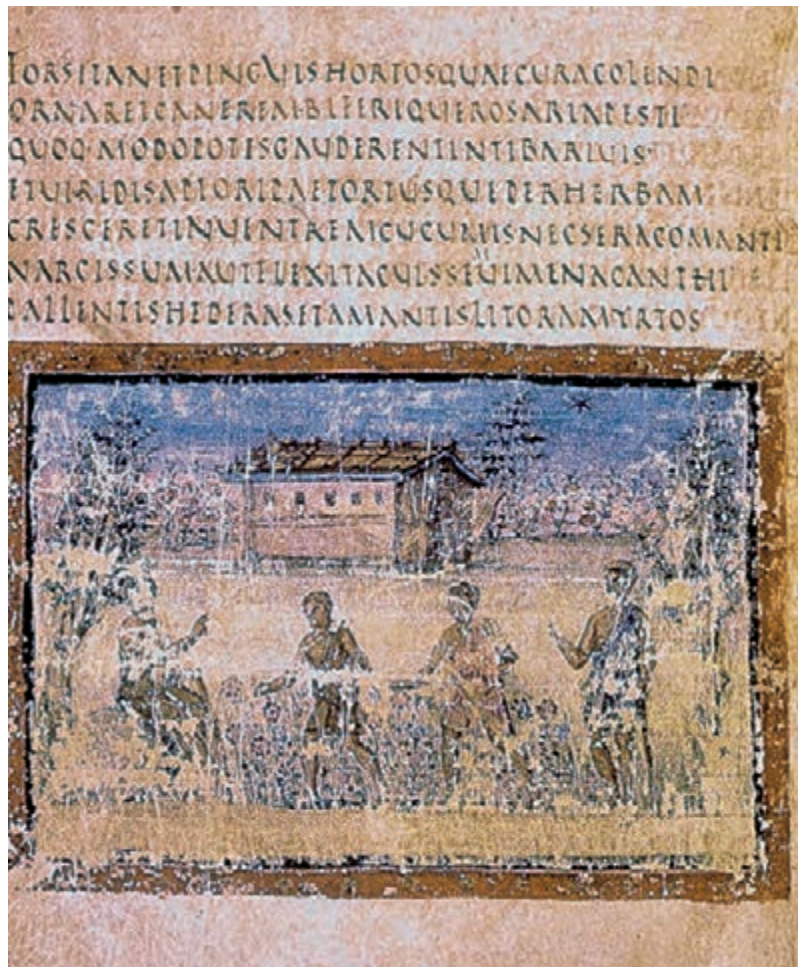 FORSITANETPINGUISHORTOSQUAECURACOLENDI
ORNARETCANEREMBIFERIQUEROSARIAPESTI
QUOQ·MODOPOTISGAUDERENTINTIBARIUIS·
ETUIRIDISAPIORIPAETORTUSQUEPERHERBAM
CRESCERETINUENTREMCUCUMISNECSERACOMANTE
NARCISSUMAUTFLEXITACUISSEUIMENACANTHI
PALLENTISHEDERASETAMANTISLITORAMYRTOS